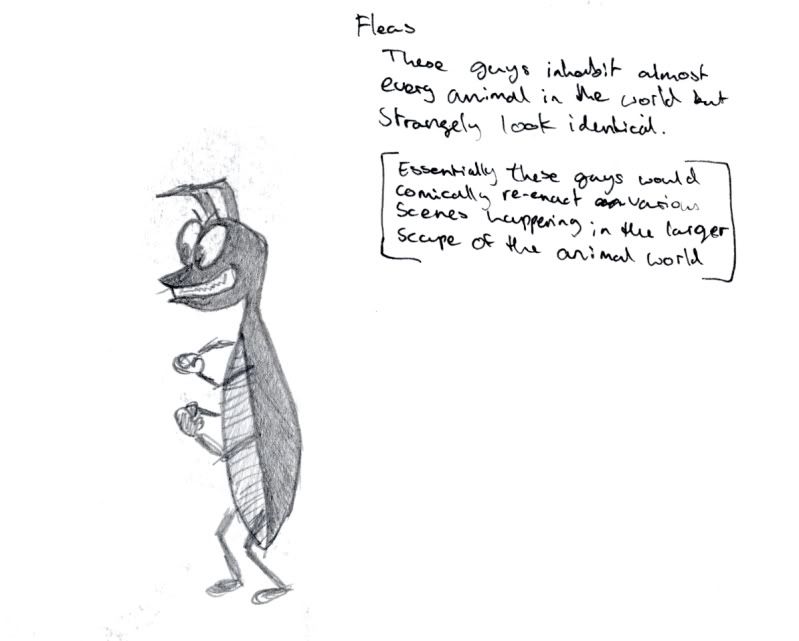 Fleas
These guys inhabit almost
every animal in the world but
Strangely look identical.
Essentially these guys would
comically re-enact various
Scenes happening in the larger
scape of the animal world